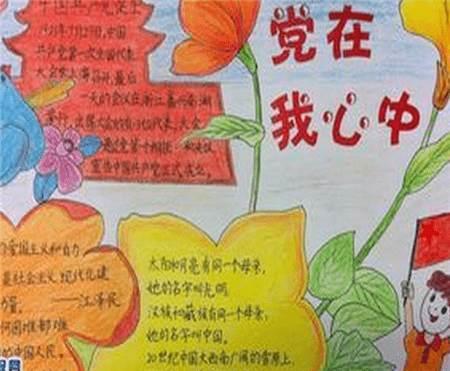 党在
我心中
中国共产党
1921年7月23日,中国
共产党第一次全国代表
大会在上海召开,最后
一天的会议在浙江嘉兴南湖
举行,出席大会的有13位代表,大会
通过党第个纲领和决议
宣告中国共产党正式成立。
的爱国主义和自力
是社会主义现代化建
力量。——江泽民
何困难都难
的中国人民。
太阳和月亮有同一个母亲,
她的名字叫光明,
汉族和藏族有同一个母亲,
她的名字叫中国。
20世纪中国大西南广阔的雪原上,